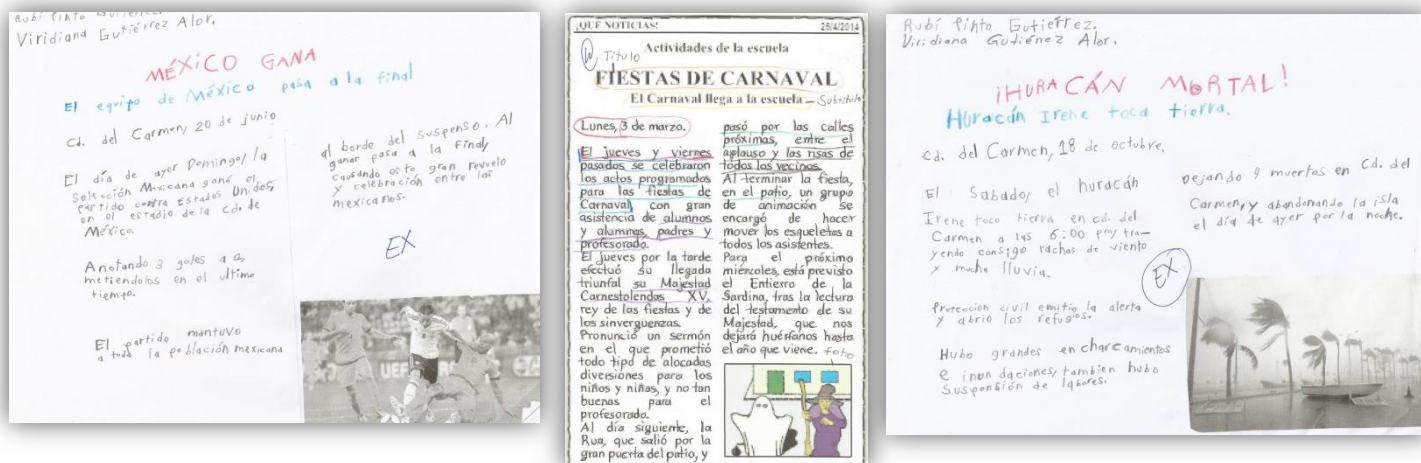 Rubí Pinto Gutiérrez.
Viridiana Gutiérrez Alor.
MÉXICO GANA
El equipo de México pasa a la final
Cd. del Carmen, 20 de junio
El día de ayer Domingo, la
Selección Mexicana ganó el
partido contra Estados Unidos,
en el estadio de la Cd. de
México.
Anotando 3 goles a 2,
metiendolos en el ultimo
tiempo.
El partido mantuvo
a toda la población mexicana
al borde del suspenso. Al
ganar pasa a la final,
causando esto gran revuelo
y celebración entre los
mexicanos.
EX
¡QUE NOTICIAS!
25/4/2014
Título
Actividades de la escuela
FIESTAS DE CARNAVAL
El Carnaval llega a la escuela – Subtitulo
Lunes, 3 de marzo.
El jueves y viernes
pasados se celebraron
los actos programados
para las fiestas de
Carnaval, con gran
asistencia de alumnos
y alumnas, padres y
profesorado.
El jueves por la tarde
efectuó su llegada
triunfal su Majestad
Carnestolendas XV,
rey de las fiestas y de
los sinvergüenzas.
Pronunció un sermón
en el que prometió
todo tipo de alocadas
diversiones para los
niños y niñas, y no tan
buenas para el
profesorado.
Al día siguiente, la
Rua, que salió por la
gran puerta del patio, y
pasó por las calles
próximas, entre el
aplauso y las risas de
todos los vecinos.
Al terminar la fiesta,
en el patio, un grupo
de animación se
encargó de hacer
mover los esqueletos a
todos los asistentes.
Para el próximo
miércoles, está previsto
el Entierro de la
Sardina, tras la lectura
del testamento de su
Majestad, que nos
dejará huérfanos hasta
el año que viene.
foto
Rubí Pinto Gutiérrez.
Viridiana Gutiérrez Alor.
¡HURACÁN MORTAL!
Huracán Irene toca tierra.
Cd. del Carmen, 18 de octubre.
El Sabado, el huracán
Irene toco tierra en cd. del
Carmen a las 6:00 pm, tra-
yendo consigo rachas de viento
y mucha lluvia.
Proteccion civil emitio la alerta
y abrio los refugios.
Hubo grandes encharcamientos
e inundaciones, tambien hubo
Suspensión de labores.
Dejando 9 muertos en Cd. del
Carmen, y abandonando la isla
el día de ayer por la noche.
EX